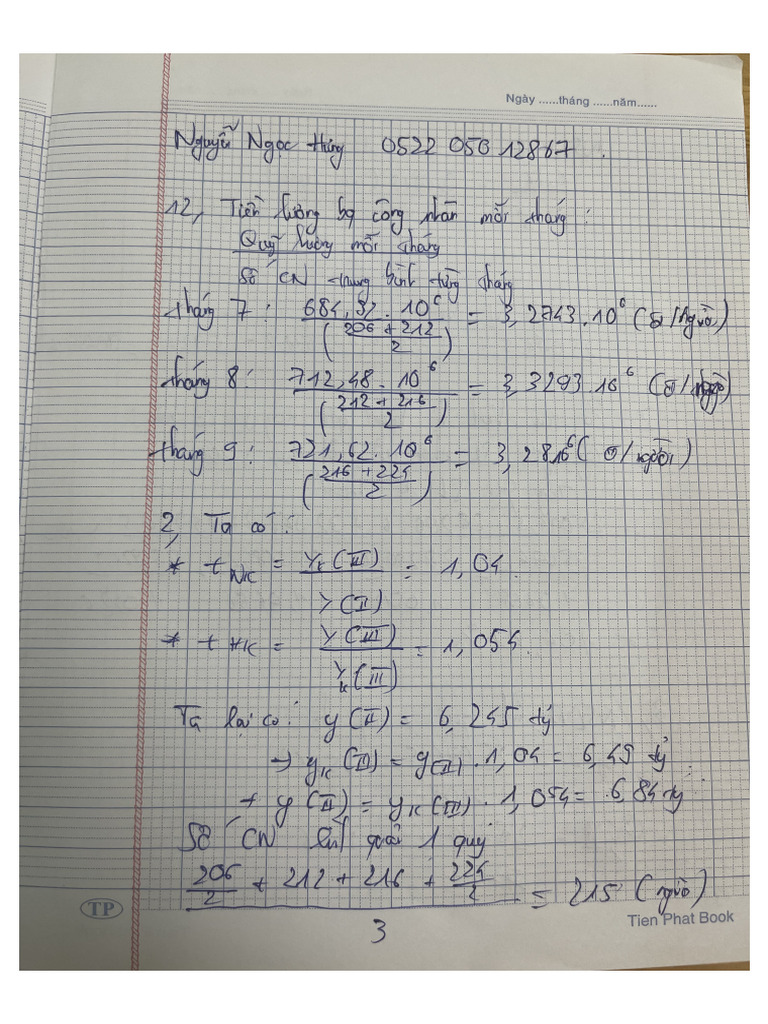 Ngày ......tháng ......năm......
Nguyễn Ngọc Hùng 0522 050 12867.
12, Tiền lương bq công nhân mỗi tháng:
Quỹ lương mỗi tháng
Số CN trung bình từng tháng
tháng 7: 684,32 . 10^6 / ((206 + 212)/2) = 3,2743 . 10^6 (đ/người)
tháng 8: 712,48 . 10^6 / ((212 + 216)/2) = 3,3293 . 10^6 (đ/người)
tháng 9: 721,62 . 10^6 / ((216 + 224)/2) = 3,28 10^6 (đ/người)
2, Ta có:
* t NK = yk (III) / y (II) = 1,04
* t HK = y (III) / yk (III) = 1,054
Ta lại có: y (II) = 6,245 tỷ
→ yk (III) = y(II) . 1,04 = 6,49 tỷ
→ y (III) = yk (III) . 1,054 = 6,84 tỷ
Số CN quý
(206/2 + 212 + 216 + 224/2) / 3 = 215 (người)
TP
Tien Phat Book